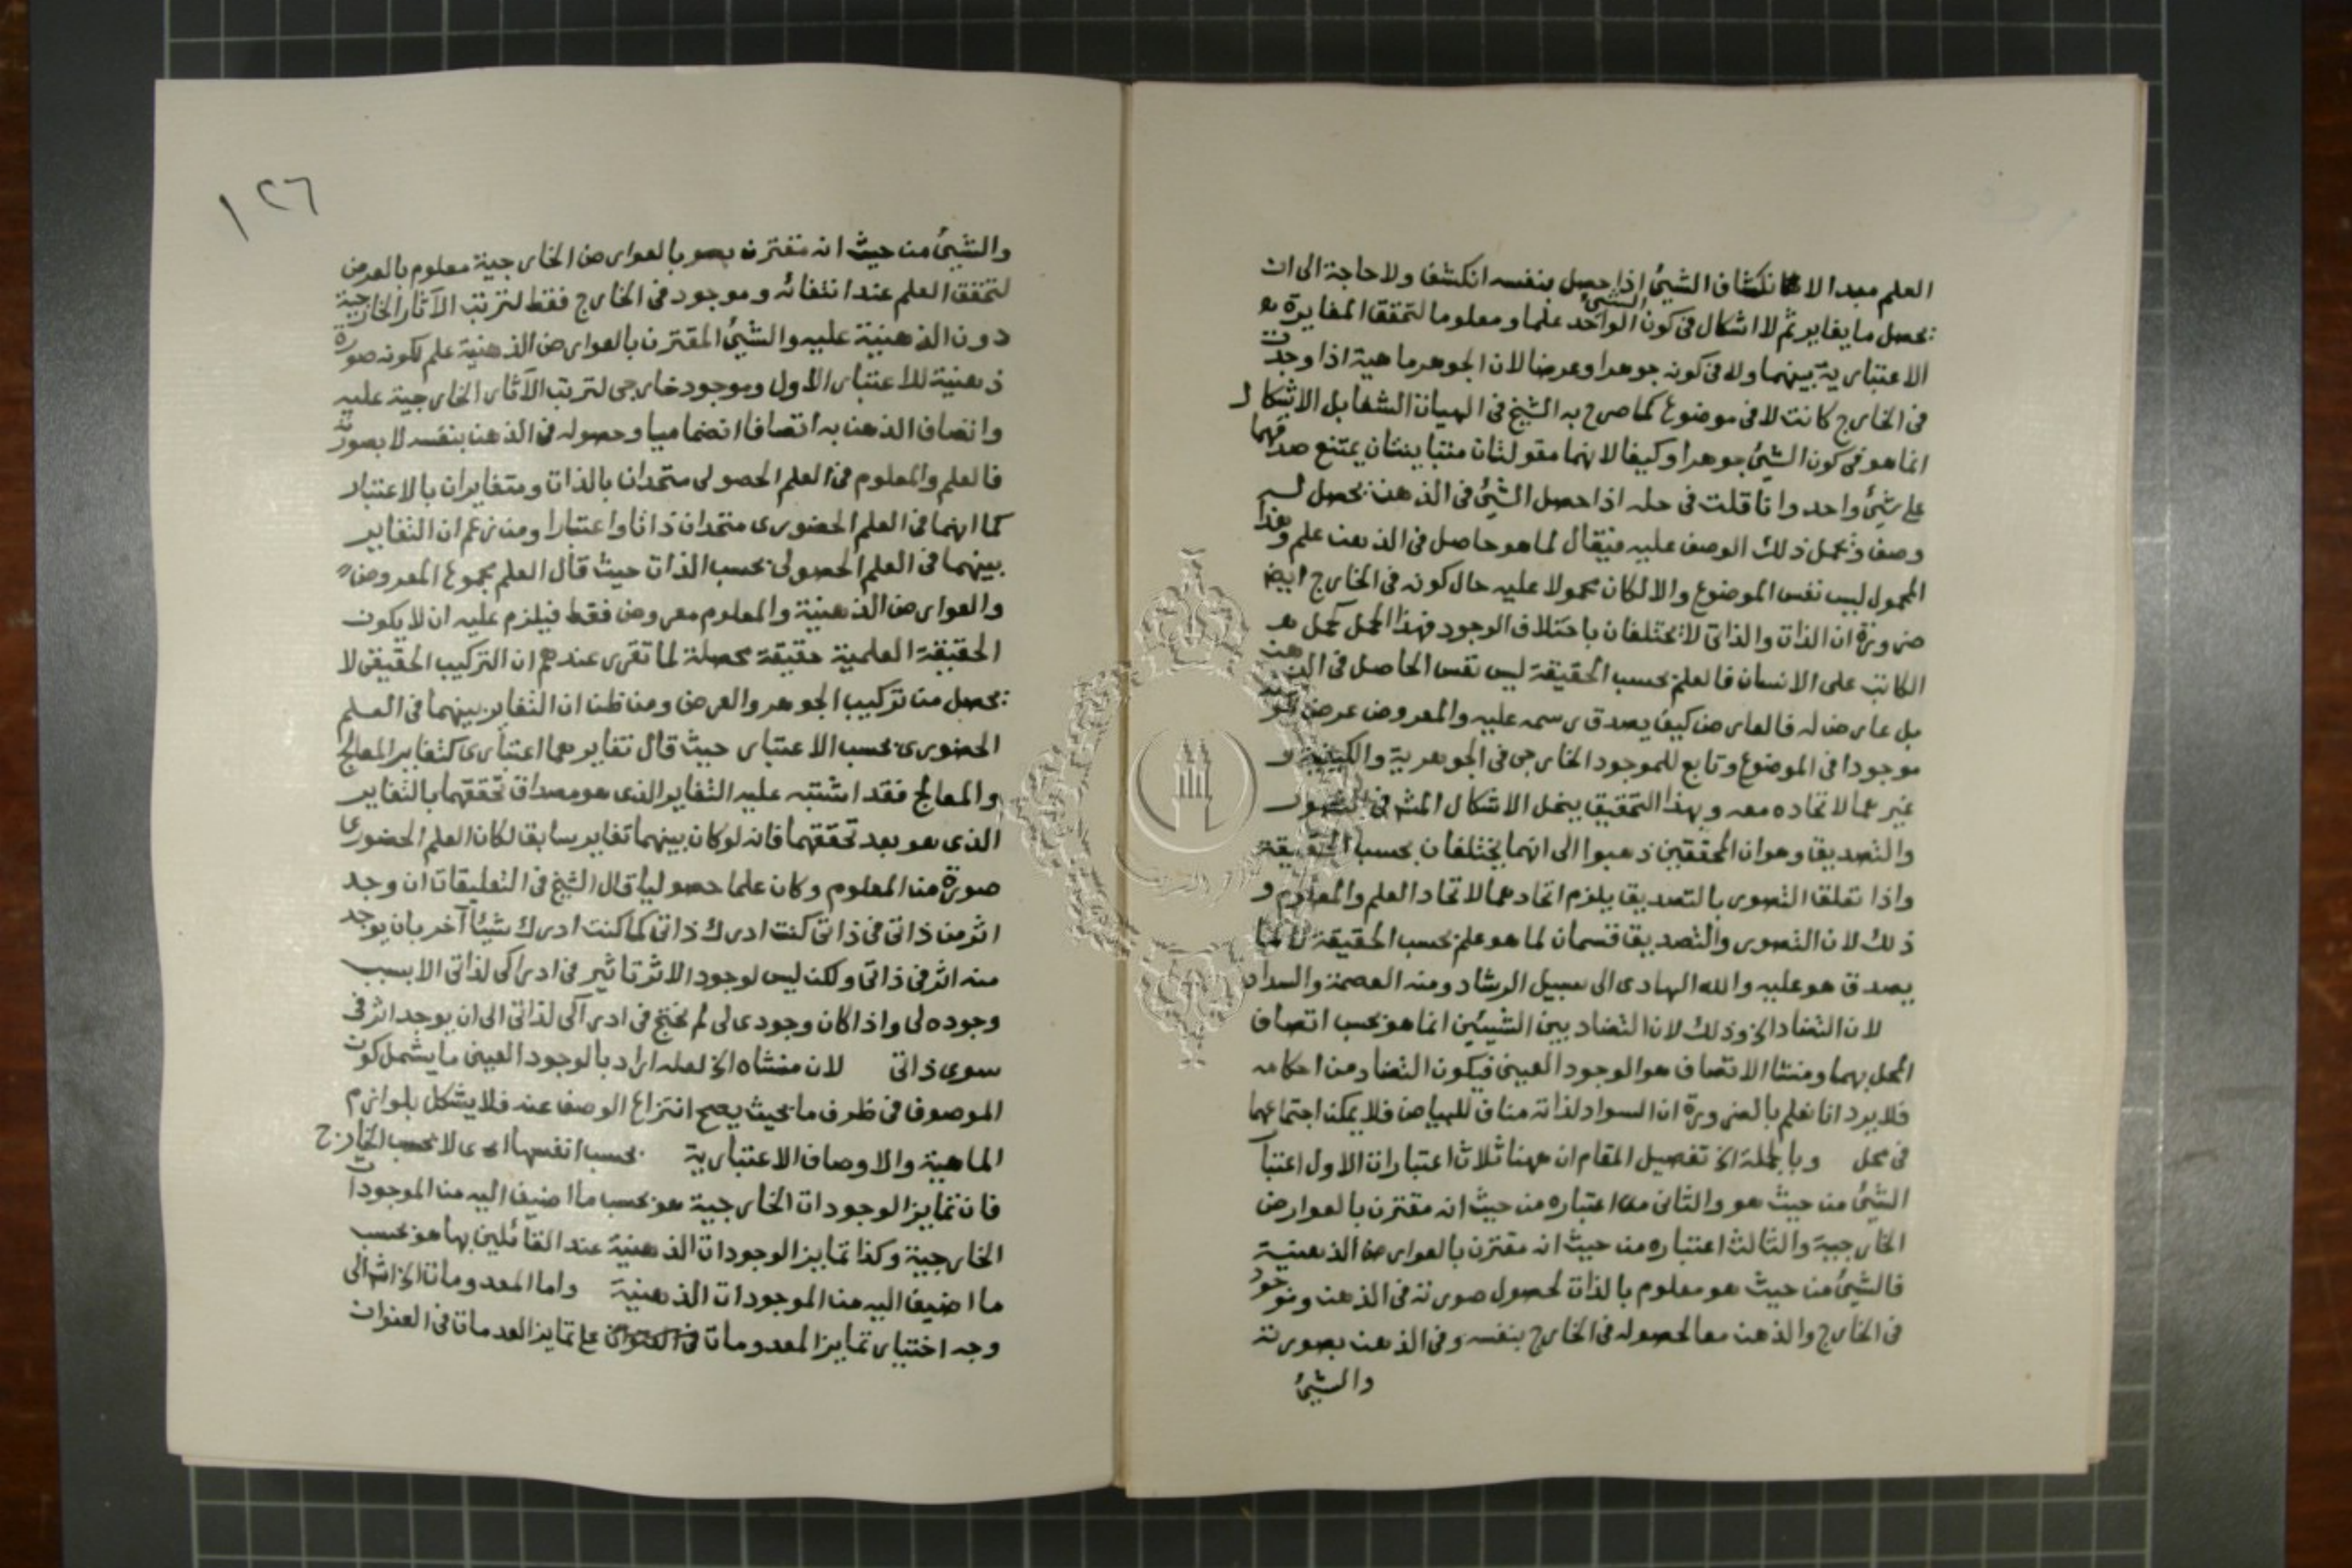 العلم مبدا الانكشاف الشيئ اذا حصل بنفسه انكشف ولا حاجة الى ان
يحصل ما يغاير ثم لا اشكال فى كون الشيئ الواحد علما ومعلوما لتحقق المغايرة
الاعتبارية بينهما ولا فى كونه جوهرا وعرضا لان الجوهر ماهية اذا وجدت
فى الخارج كانت لا فى موضوع كما صرح به الشيخ فى الهيات الشفا بل الاشكال
انما هو فى كون الشيئ جوهرا وكيفا لانهما مقولتان متباينتان يمتنع صدقهما
على شيئ واحد وانا قلت فى حله اذا حصل الشيئ فى الذهن يحصل له
وصف ويحمل ذلك الوصف عليه فيقال لما هو حاصل فى الذهن علم وهذا
المحمول ليس نفس الموضوع والا لكان محمولا عليه حال كونه فى الخارج ايضا
ضرورة ان الذات والذاتى لا يختلفان باختلاف الوجود فهذا الحمل كحمل
الكاتب على الانسان فالعلم بحسب الحقيقة ليس نفس الحاصل فى الذهن
بل عارض له فالعارض كيف يصدق رسمه عليه والمعروض عرض
موجودا فى الموضوع وتابع للموجود الخارجى فى الجوهرية والكيفية و
غيرهما لاتحاده معه وبهذا التحقيق ينحل الاشكال المش فى التصور
والتصديق وهو ان المحققين ذهبوا الى انهما يختلفان بحسب الحقيقة
واذا تعلق التصور بالتصديق يلزم اتحادهما لاتحاد العلم والمعلوم و
ذلك لان التصور والتصديق قسمان لما هو علم بحسب الحقيقة لا لما
يصدق هو عليه والله الهادى الى سبيل الرشاد ومنه العصمة والسداد
لان التضاد الخ وذلك لان التضاد بين الشيئين انما هو بحسب اتصاف
المحل بهما ومنشا الاتصاف هو الوجود العينى فيكون التضاد من احكامه
فلا يرد انا نعلم بالضرورة ان السواد لذاته مناف للبياض فلا يمكن اجتماعهما
فى محل وبالجملة الخ تفصيل المقام ان ههنا ثلاث اعتبارات الاول اعتبار
الشيئ من حيث هو والثانى اعتباره من حيث انه مقترن بالعوارض
الخارجية والثالث اعتباره من حيث انه مقترن بالعوارض الذهنية
فالشيئ من حيث هو معلوم بالذات لحصول صورته فى الذهن وموجود
فى الخارج والذهن معا لحصوله فى الخارج بنفسه وفى الذهن بصورته
والشيئ
١٢٦
والشيئ من حيث انه مقترن بالعوارض الخارجية معلوم بالعرض
لتحقق العلم عند انتفائه وموجود فى الخارج فقط لترتب الآثار الخارجية
دون الذهنية عليه والشيئ المقترن بالعوارض الذهنية علم لكونه صورة
ذهنية للاعتبار الاول وموجود خارجى لترتب الآثار الخارجية عليه
واتصاف الذهن به اتصافا انضماميا وحصوله فى الذهن بنفسه لا بصورته
فالعلم والمعلوم فى العلم الحصولى متحدان بالذات ومتغايران بالاعتبار
كما انهما فى العلم الحضورى متحدان ذاتا واعتبارا ومن زعم ان التغاير
بينهما فى العلم الحصولى بحسب الذات حيث قال العلم مجموع المعروض
والعوارض الذهنية والمعلوم معروض فقط فيلزم عليه ان لا يكون
الحقيقة العلمية حقيقة محصلة لما تقرر عندهم ان التركيب الحقيقى لا
يحصل من تركيب الجوهر والعرض ومن ظن ان التغاير بينهما فى العلم
الحضورى بحسب الاعتبار حيث قال تغايرهما اعتبارى كتغاير المعالج
والمعالج فقد اشتبه عليه التغاير الذى هو مصداق تحققهما بالتغاير
الذى هو بعد تحققهما فانه لو كان بينهما تغاير سابق لكان العلم الحضورى
صورة من المعلوم وكان علما حصوليا قال الشيخ فى التعليقات ان وجد
اثر من ذاتى فى ذاتى كنت ادرك ذاتى كما كنت ادرك شيئا آخر بان يوجد
منه اثر فى ذاتى ولكن ليس لوجود الاثر تاثير فى ادراكى لذاتى الا بسبب
وجوده لى واذا كان وجودى لى لم يحتج فى ادراكى لذاتى الى ان يوجد اثر فى
سوى ذاتى لان منشاه الخ لعله اراد بالوجود العينى ما يشمل كون
الموصوف فى ظرف ما بحيث يصح انتزاع الوصف عنه فلا يشكل بلوازم
الماهية والاوصاف الاعتبارية بحسب انفسها اى لا بحسب الخارج
فان تمايز الوجودات الخارجية هو بحسب ما اضيف اليه من الموجودات
الخارجية وكذا تمايز الوجودات الذهنية عند القائلين بها هو بحسب
ما اضيف اليه من الموجودات الذهنية واما المعدومات الخ اشار الى
وجه اختيار تمايز المعدومات على تمايز العدمات فى العنوان